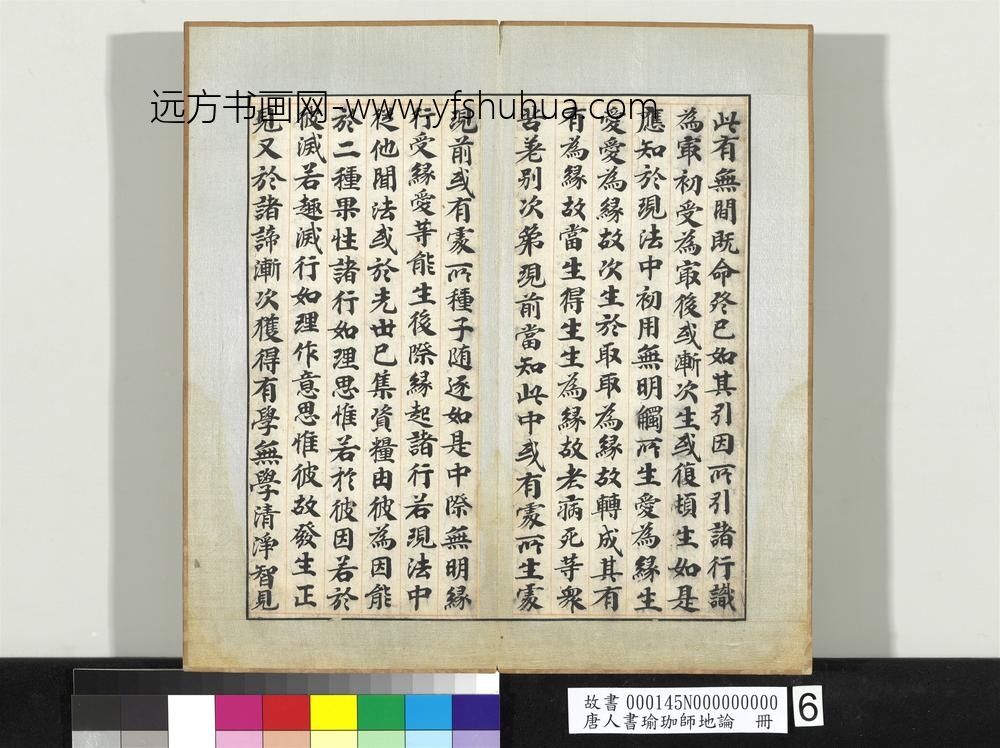 远方书画网-www.yfshuhua.com
此有無間既命終已如其引因所引諸行識
為最初受為最後或漸次生或復頓生如是
應知於現法中初用無明觸所生愛為緣生
愛愛為緣故次生於取取為緣故轉成其有
有為緣故當生得生生為緣故老病死等衆
苦差別次第現前當知此中或有處所生處
現前或有處所種子随逐如是中際無明緣
行受緣愛等能生後際緣起諸行若現法中
從他聞法或於先世已集資糧由彼為因能
於二種果性諸行如理思惟若於彼因若於
彼滅若趣滅行如理作意思惟彼故發生正
見又於諸諦漸次獲得有學無學清淨智見
故書 000145N000000000
唐人書瑜珈師地論 冊
6